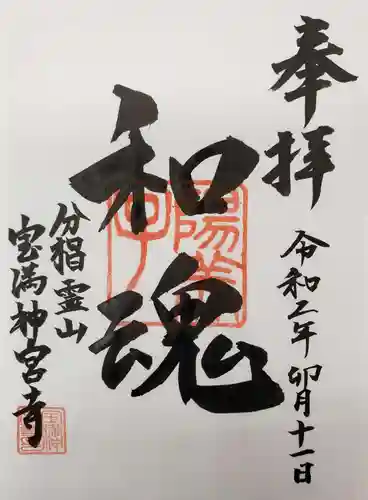 奉拝
令和二年卯月十一日
和魂
分猖霊山
宝満神宮寺